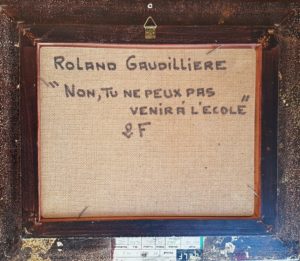 ROLAND GAUDILLIERE
"NON, TU NE PEUX PAS
VENIR À L'ECOLE"
2F